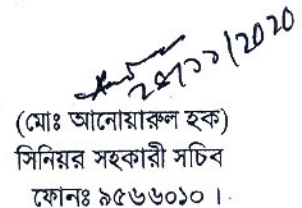 ২৪/১১/2020
(মোঃ আনোয়ারুল হক)
সিনিয়র সহকারী সচিব
ফোনঃ ৯৫৬৬০১০ ।